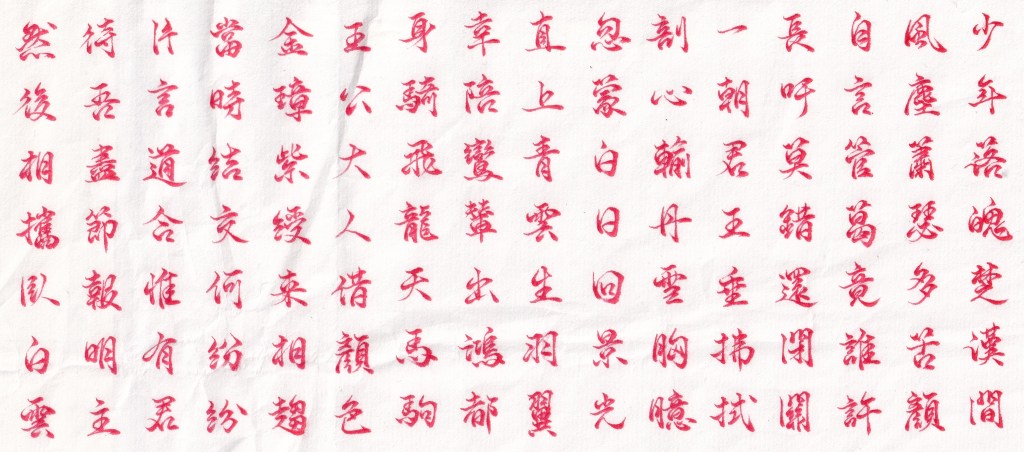 少年落魄楚漢間
風塵蕭瑟多苦顏
自言管葛竟誰許
長吁莫錯還閉關
一朝君王垂拂拭
剖心輸丹雪胸臆
忽蒙白日回景光
直上青雲生羽翼
幸陪鸞輦出鴻都
身騎飛龍天馬駒
王公大人借顏色
金璋紫綬來相趨
當時結交何紛紛
片言道合惟有君
待吾盡節報明主
然後相攜臥白雲